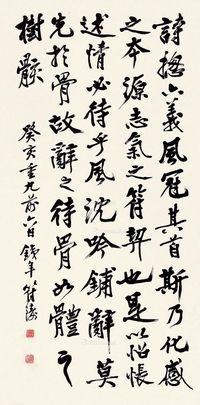 詩揔六義風冠其首斯乃化感
之本源志氣之符契也是以怊悵
述情必待乎風沈吟鋪辭莫
先於骨故辭之待骨如體之
樹骸
癸亥重九前六日錢年符濤